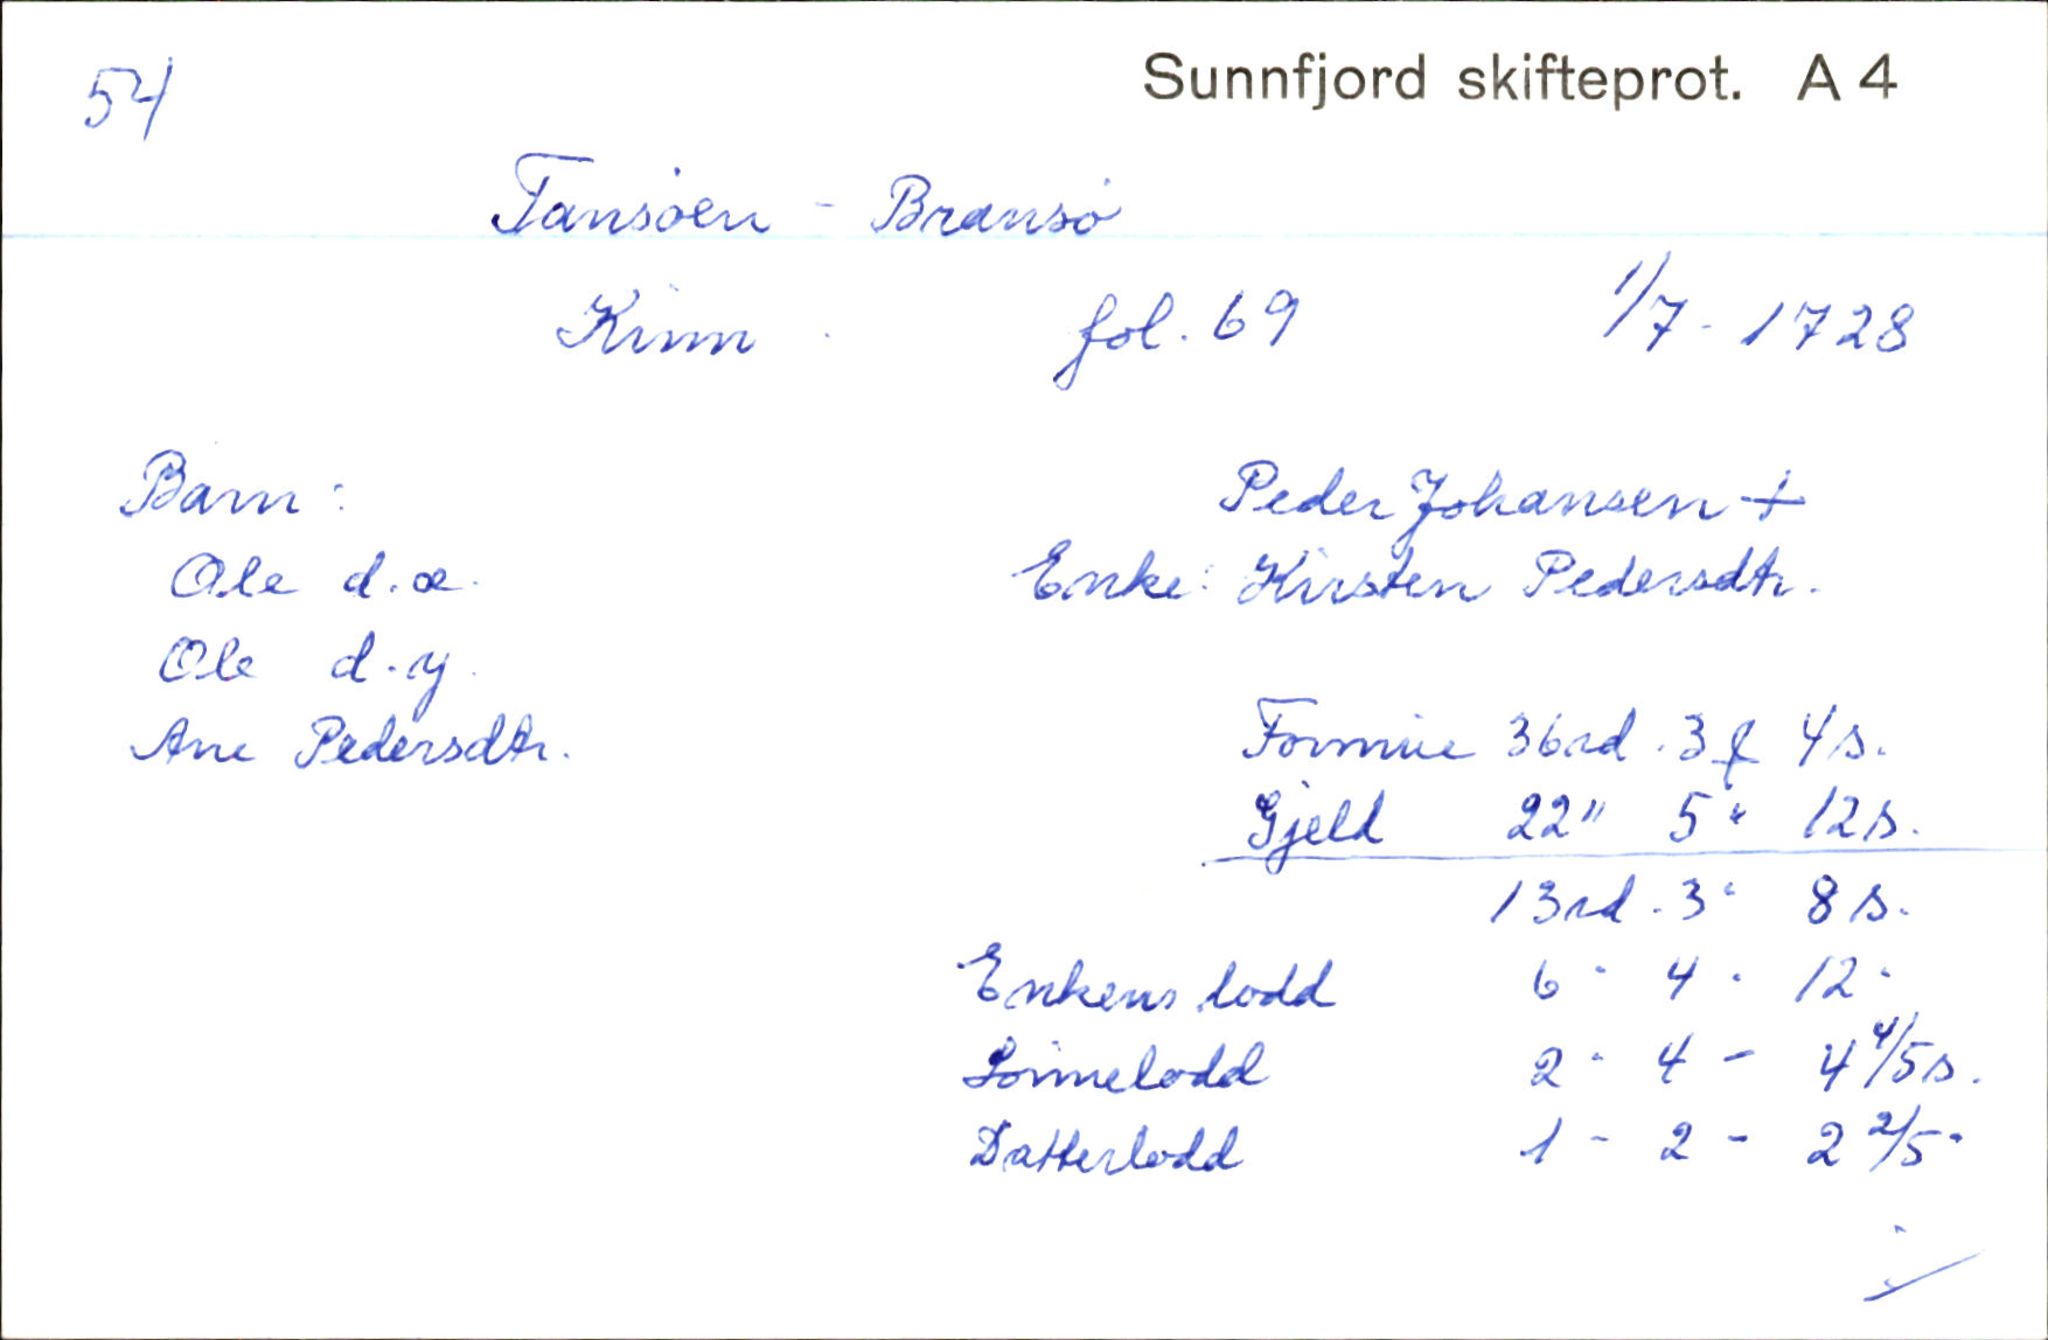 54
Sunnfjord skifteprot. A 4
Tansøen - Bransø
Kinn fol. 69 1/7 - 1728
Barn: Peder Johansen +
Ole d.æ. Enke: Kirsten Pedersdtr.
Ole d.y.
Ane Pedersdtr. Formue 36rd. 3 f 4 s.
Gjeld 22 " 5 " 12 s.
13rd. 3 " 8 s.
Enkens lodd 6 " 4 " 12 "
Sønnelodd 2 " 4 - 4 4/5 s.
Datterlodd 1 - 2 - 2 2/5 "